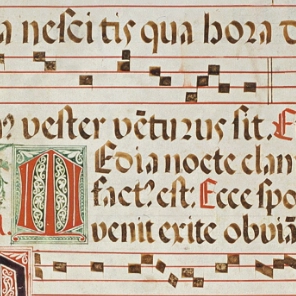 a nescitis qua hora d
vester vẽturus sit. E
Media nocte clam
fact⁹ est. Ecce spo
venit exite obviā